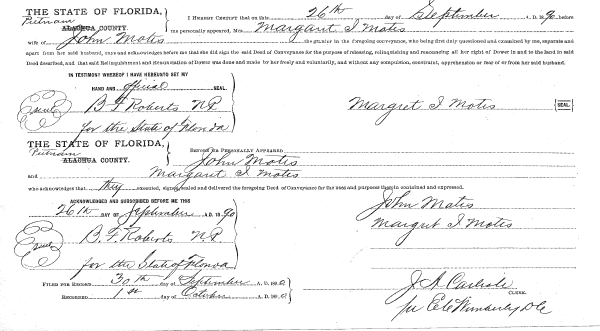 THE STATE OF FLORIDA,
Putnam
ALACHUA COUNTY.
I HEREBY CERTIFY that on this 26th day of September A. D. 1890, before
me personally appeared, Mrs. Margaret I Motes
wife of John Motes the grantor in the foregoing conveyance, who being first duly questioned and examined by me, separate and
apart from her said husband, states and acknowledges before me that she did sign the said Deed of Conveyance for the purpose of releasing, relinquishing and renouncing all her right of Dower in and to the land in said
Deed described, and that said Relinquishment and Renunciation of Dower was done and made by her freely and voluntarily, and without any compulsion, constraint, apprehension or fear of or from her said husband.
IN TESTIMONY WHEREOF I HAVE HEREUNTO SET MY
HAND AND official SEAL.
Seal
B. F. Roberts N.P.
for the State of Florida
Margret I Motes SEAL.
THE STATE OF FLORIDA,
Putnam
ALACHUA COUNTY.
BEFORE ME PERSONALLY APPEARED
John Motes
and Margaret I Motes
who acknowledges that they executed, signed, sealed and delivered the foregoing Deed of Conveyance for the uses and purposes therein contained and expressed.
ACKNOWLEDGED AND SUBSCRIBED BEFORE ME THIS
26th DAY OF September A. D. 1890
Seal
B. F. Roberts N.P.
for the State of Florida
John Motes
Margret I Motes
FILED FOR RECORD 30th day of September A. D. 1890
RECORDED 1st day of October A. D. 1890
J. N. Carlisle CLERK.
per Wimberly D C